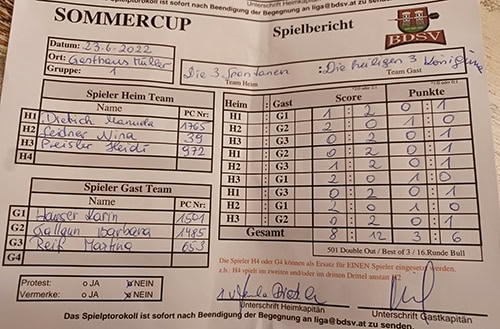 Das Spielprotokoll ist sofort nach Beendigung der Begegnung an liga@bdsv.at zu senden.
Unterschrift Heimkapitän
Unterschrift Gastkapitän
SOMMERCUP
Spielbericht
BDSV
Datum: 23.6.2022
Ort: Gasthaus Müller
Gruppe: 1
Die 3 Spontanen : Die heiligen 3 Könige
Team Heim Team Gast
Spieler Heim Team
Name PC Nr:
H1 Dietrich Manuela 1765
H2 Leidner Nina 39
H3 Preisler Heidi 972
H4
Heim : Gast Score Punkte
H1 : G1 1 : 2 0 : 1
H2 : G2 2 : 0 1 : 0
H3 : G3 0 : 2 0 : 1
H1 : G2 0 : 2 0 : 1
H2 : G3 1 : 2 0 : 1
H3 : G1 2 : 0 1 : 0
H1 : G3 0 : 2 0 : 1
H2 : G1 2 : 0 1 : 0
H3 : G2 0 : 2 0 : 1
Gesamt 8 : 12 3 : 6
501 Double Out / Best of 3 / 16.Runde Bull
Spieler Gast Team
Name PC Nr:
G1 Hauser Karin 1501
G2 Barbara 1485
G3 Reif Martina 653
G4
Die Spieler H4 oder G4 können als Ersatz für EINEN Spieler eingesetzt werden.
z.b.: H4 spielt im zweiten und/oder im dritten Drittel anstatt H2
Protest: o JA x NEIN
Vermerke: o JA x NEIN
Unterschrift Heimkapitän
Unterschrift Gastkapitän
Das Spielprotokoll ist sofort nach Beendigung der Begegnung an liga@bdsv.at zu senden.